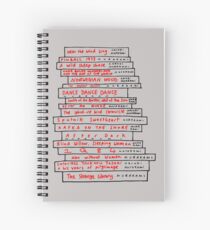 HEAR THE WIND SING
PINBALL 1973
A WILD SHEEP CHASE
AND THE END OF THE WORLD
NORWEGIAN WOOD
DANCE DANCE DANCE
South of the Border, West of the Sun
The Wind-Up Bird Chronicle
Sputnik Sweetheart MURAKAMI
KAFKA ON THE SHORE
After Dark MURAKAMI
Blind Willow, Sleeping Woman
1Q84 MURAKAMI
Men Without Women MURAKAMI
Colorless Tsukuru Tazaki
& His Years of Pilgrimage MURAKAMI
The Strange Library MURAKAMI